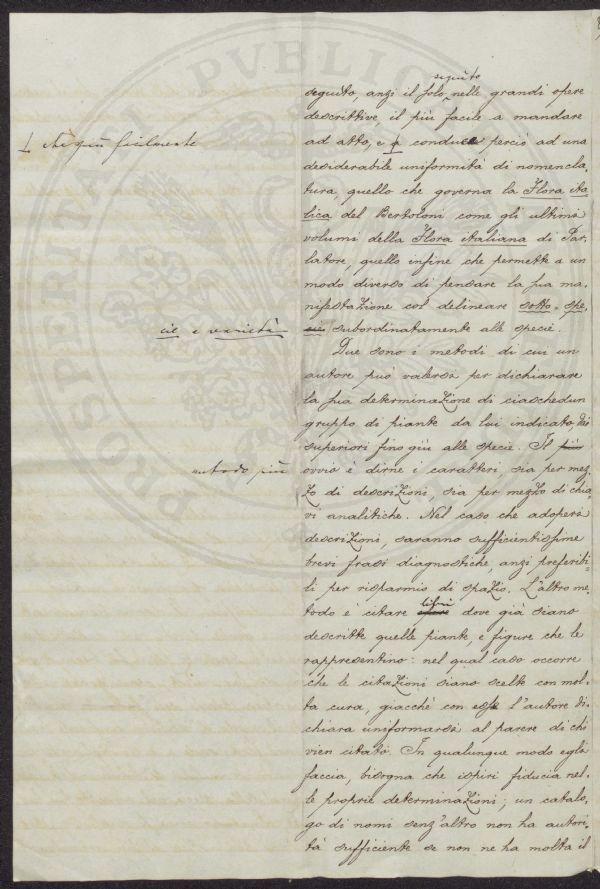 seguito
seguito, anzi il solo, nelle grandi opere
descrittive, il più facile a mandare
ad atto, e conduce perciò ad una
che più facilmente
desiderabile uniformità di nomencla-
tura, quello che governa la Flora ita-
lica del Bertoloni come gli ultimi
volumi della Flora italiana di Par-
latore, quello infine che permette a un
modo diverso di pensare la sua ma-
nifestazione col delineare sotto-spe-
cie e varietà
cie subordinatamente alle specie.
Due sono i metodi di cui un
autore può valersi per dichiarare
la sua determinazione di ciaschedun
gruppo di piante da lui indicato, dai
superiori fino giù alle specie. Il più
metodo più
ovvio è dirne i caratteri, sia per mez-
zo di descrizioni, sia per mezzo di chia-
vi analitiche. Nel caso che adoperi
descrizioni, saranno sufficientissime
brevi frasi diagnostiche, anzi preferibi-
li per risparmio di spazio. L'altro me-
libri
todo è citare dove già siano
descritte quelle piante, e figure che le
rappresentino: nel qual caso occorre
che le citazioni siano scelte con mol-
ta cura, giacchè con esse l'autore di-
chiara uniformarsi al parere di chi
vien citato. In qualunque modo egli
faccia, bisogna che ispiri fiducia nel-
le proprie determinazioni; un catalo-
go di nomi senz'altro non ha autori-
tà sufficiente se non ne ha molta il
PVBLIC
PROSPERITA